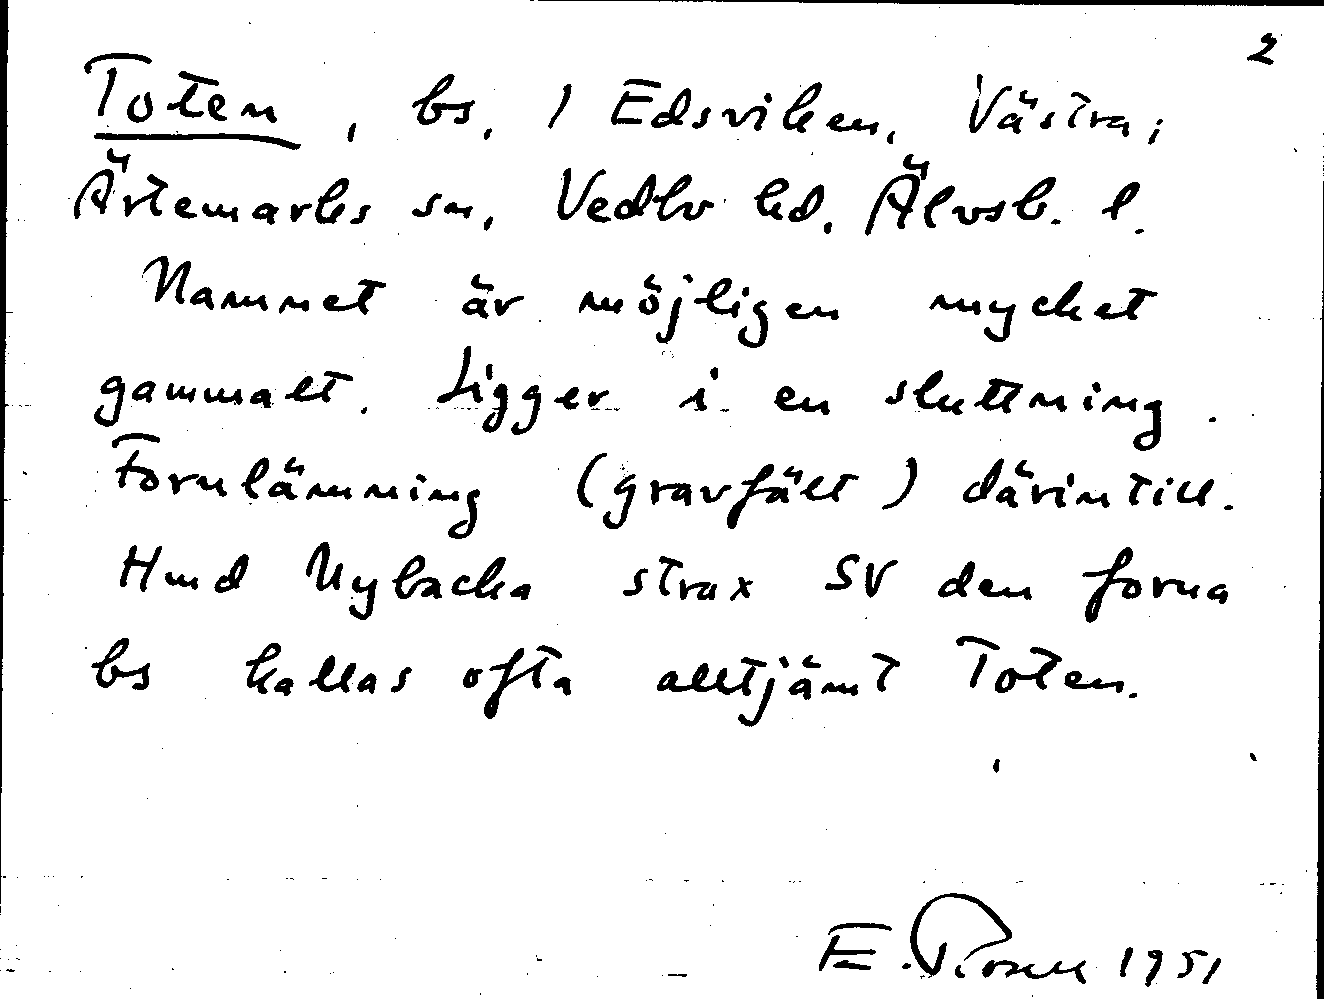 2
Toten, bs, / Edsviken, Västra;
Ärtemarks sn, Vedbo hd. Älvsb. l.
Namnet är möjligen mycket
gammalt. Ligger i en sluttning.
Fornlämning (gravfält) därintill.
Hmd Nybacka strax SV den forna
bs kallas ofta alltjämt Toten.
E. Rosell 1951